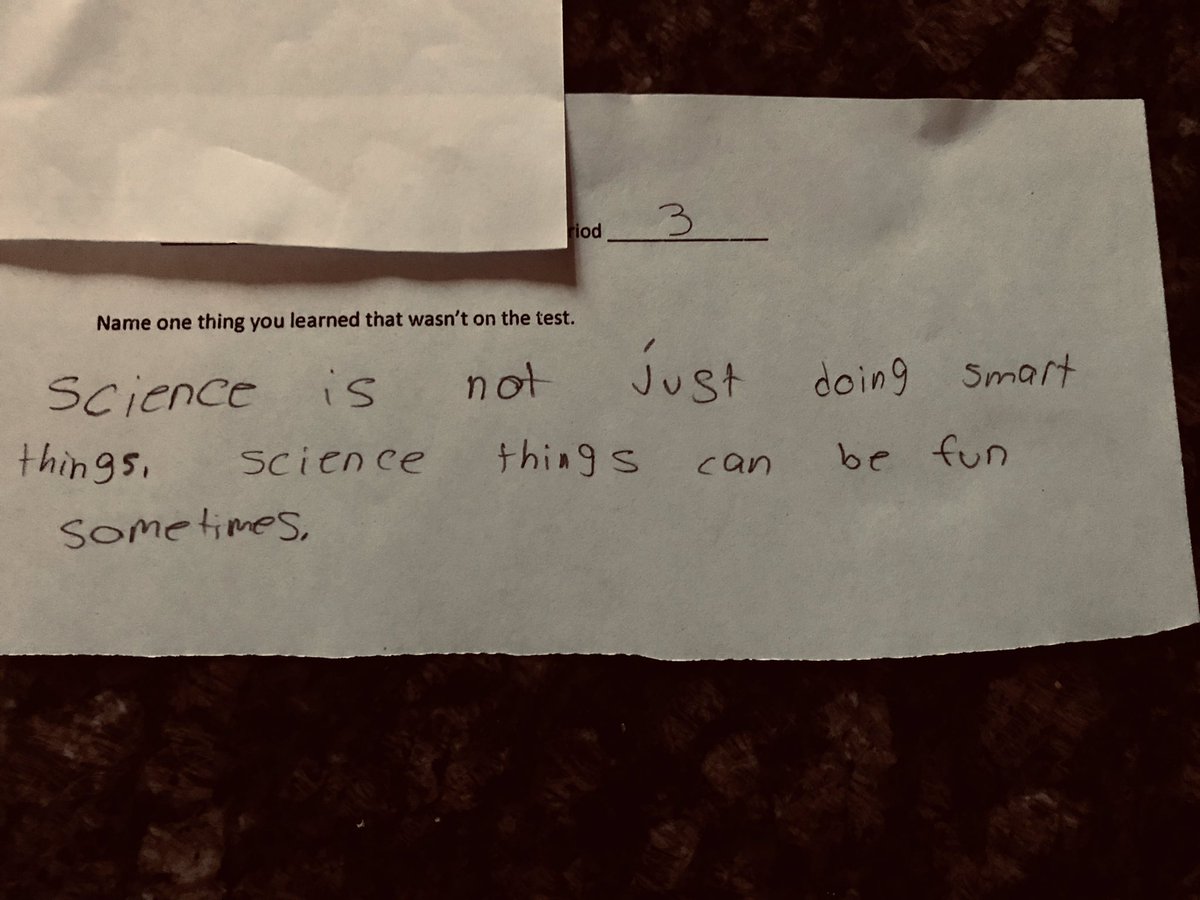 riod 3
Name one thing you learned that wasn't on the test.
Science is not just doing smart
things. science things can be fun
sometimes.